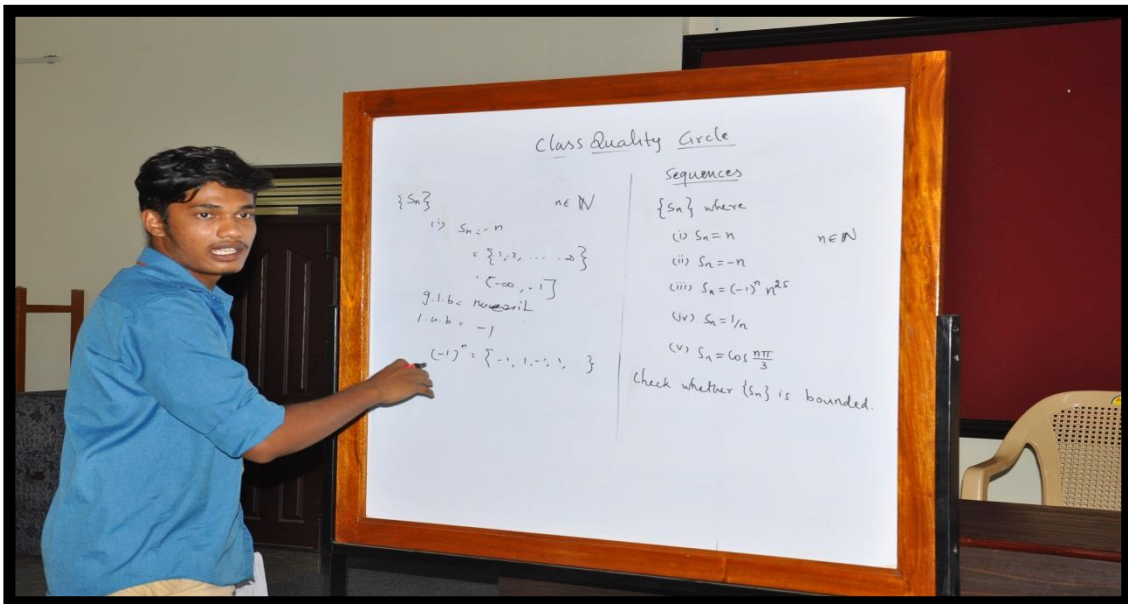 Class Quality Circle
{Sn} n∈ℕ
(i) Sn = - n
= {1, 2, ..... ∞}
= (-∞, -1]
g.l.b =
l.u.b = -1
(-1)ⁿ = {-1, 1, -1, 1, }
Sequences
{Sn} where
(i) Sn = n n∈ℕ
(ii) Sn = -n
(iii) Sn = (-1)ⁿ n²⁵
(iv) Sn = 1/n
(v) Sn = Cos nπ/3
Check whether {Sn} is bounded.